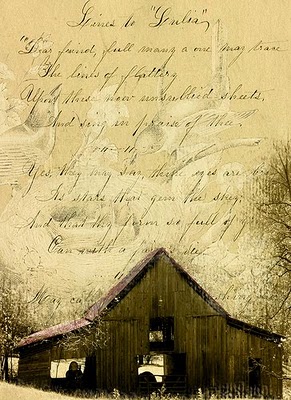 Lines to "Julia"
"Dear friend, full many a one may trace
The lines of flattery
Upon these now unsullied sheets,
And sing in praise of thee."
Yes, they may say thine eyes are
As stars that gem the sky,
And that thy form so full of
Can with a
May